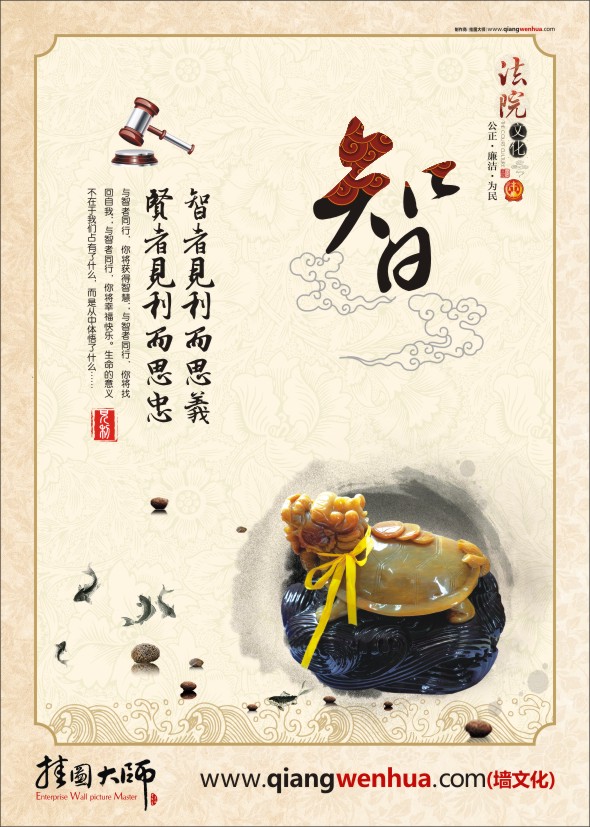 制作商:挂图大师 | www.qiangwenhua.com
法院
文化
公正·廉洁·为民
智
智者見利而思義
賢者見利而思忠
与智者同行，你将获得智慧；与智者同行，你将找
回自我；与智者同行，你将幸福快乐。生命的意义
不在于我们占有了什么，而是从中体悟了什么……
挂圖大师
Enterprise Wall picture Master
www.qiangwenhua.com(墙文化)